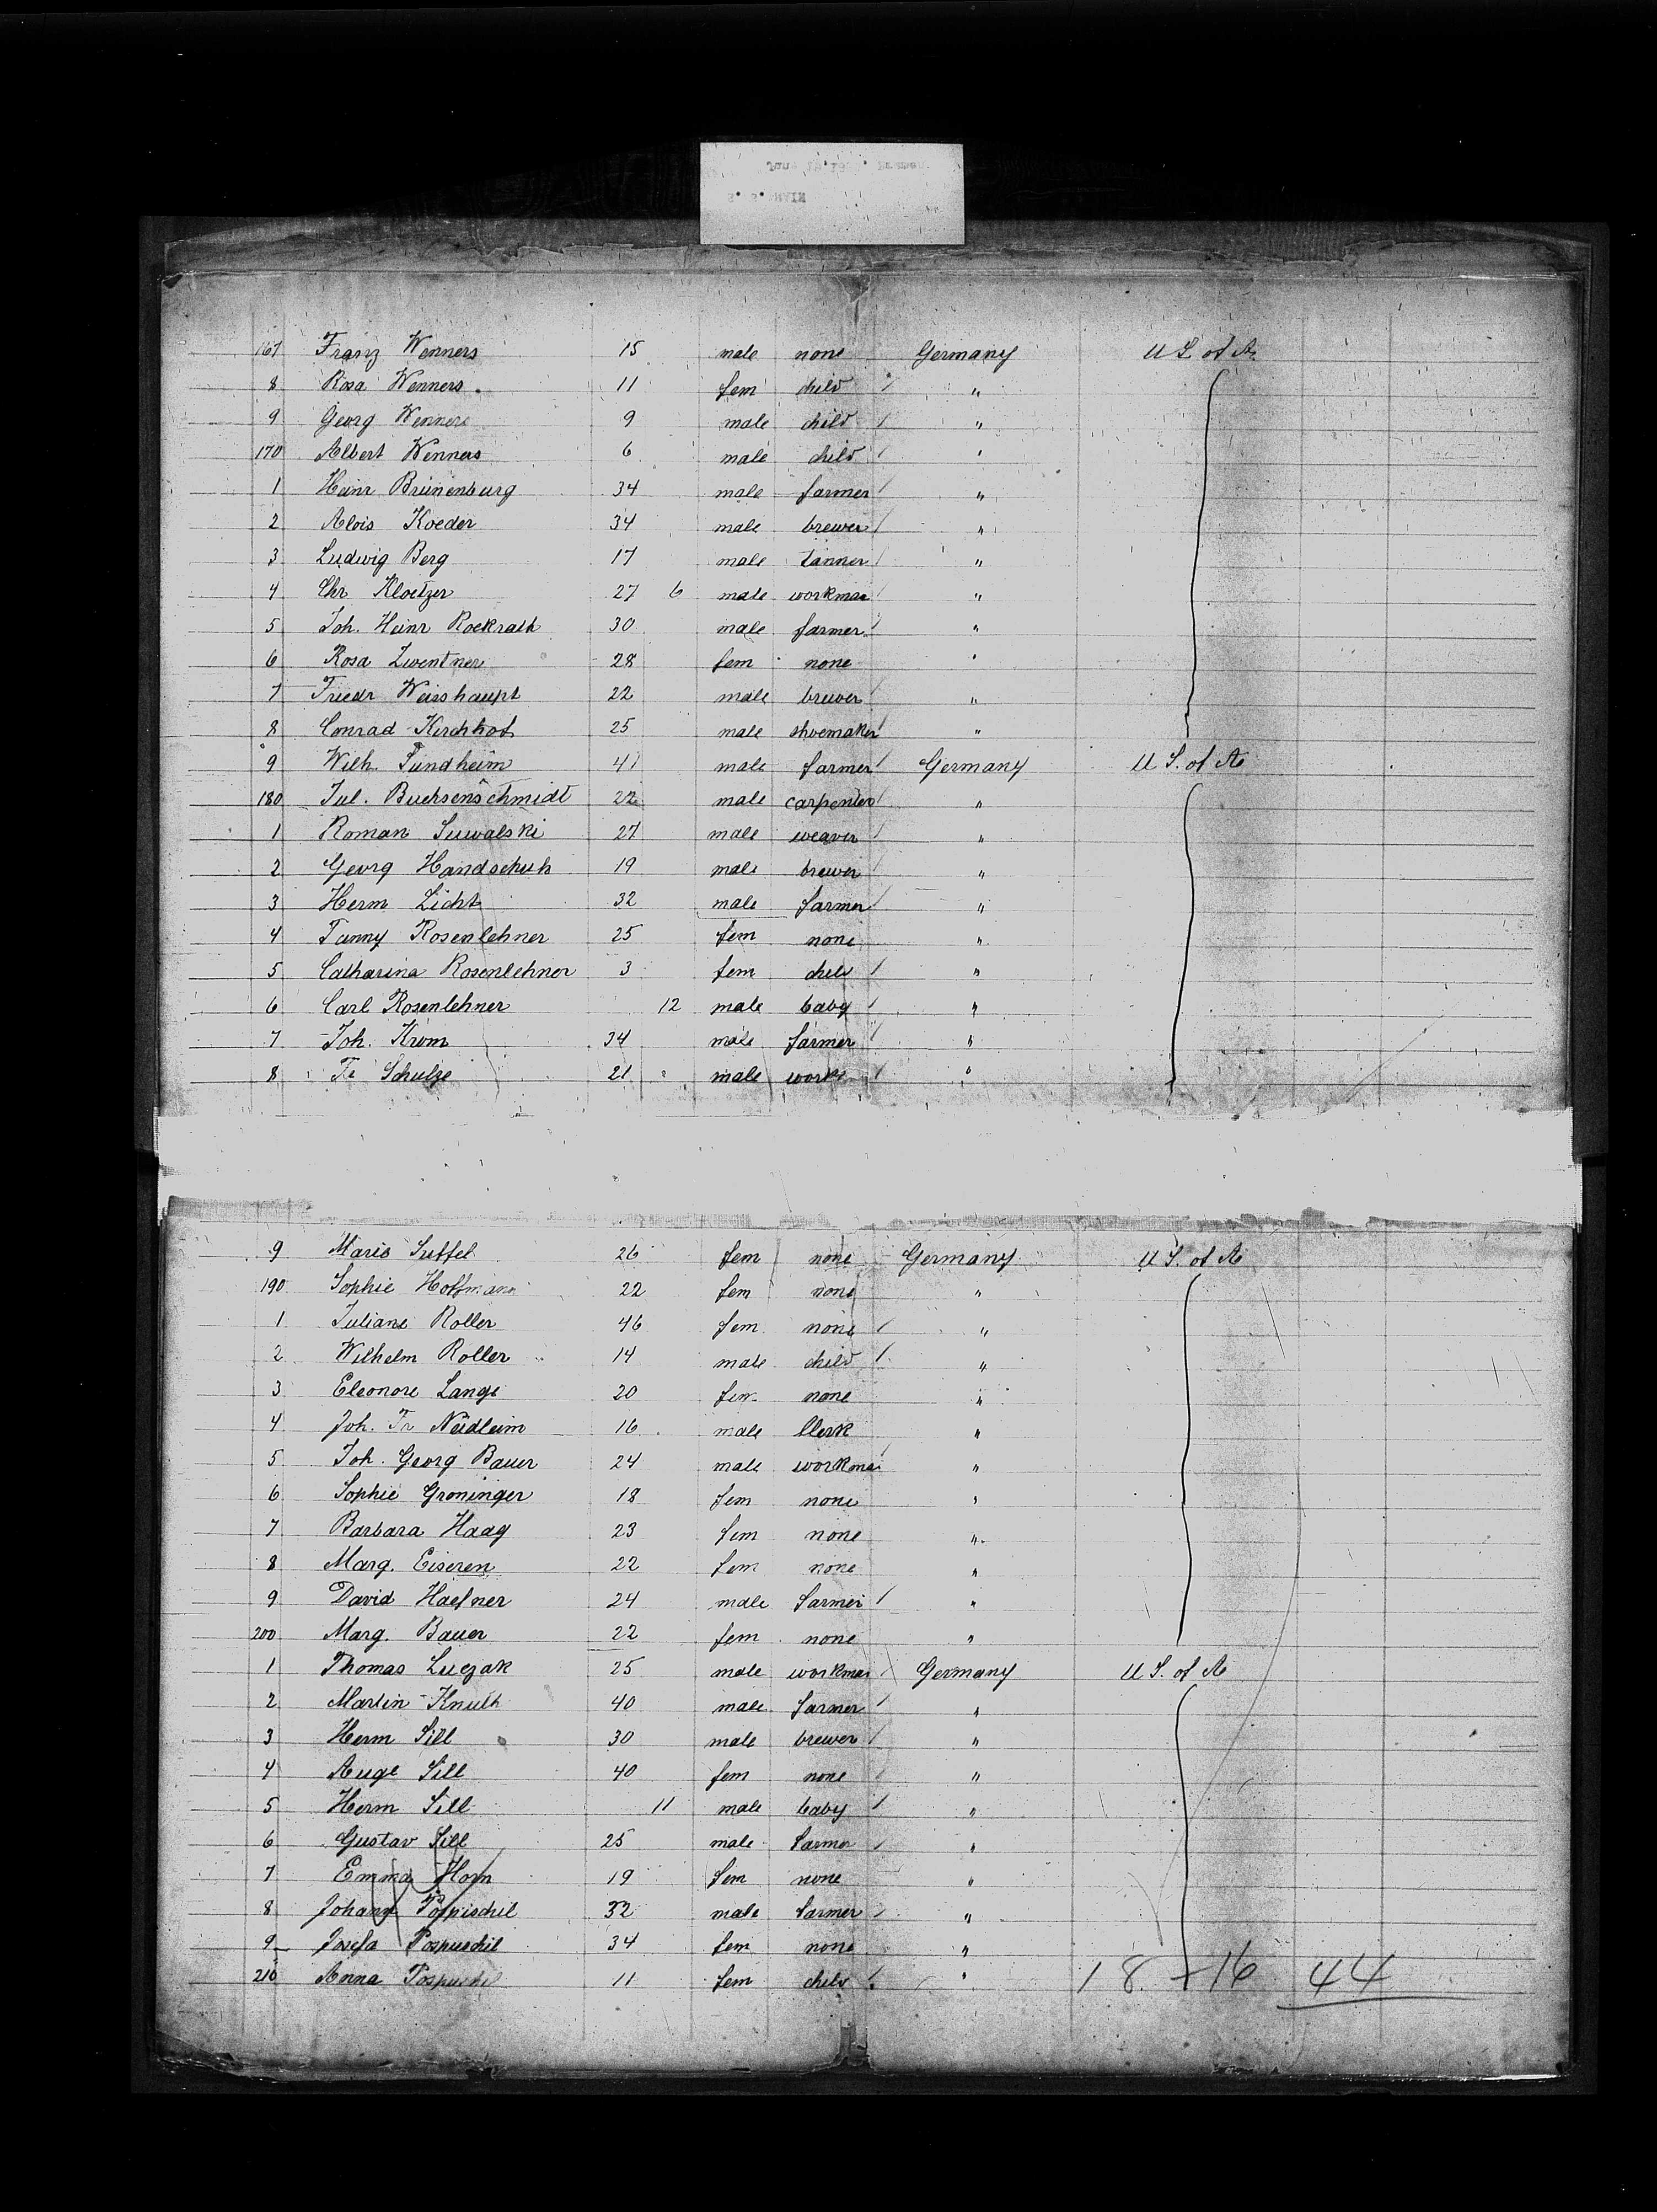 167 Franz Wenners 15 male none Germany U S. of A.
8 Rosa Wenners 11 fem child / "
9 Georg Wenners 9 male child / "
170 Albert Wenners 6 male child / "
1 Heinr Brünenburg 34 male farmer / "
2 Alois Koeder 34 male brewer / "
3 Ludwig Berg 17 male tanner / "
4 Chr Kloetzer 27 6 male workman / "
5 Joh. Heinr Rockrath 30 male farmer / "
6 Rosa Zwentner 28 fem none "
7 Friedr Weisshaupt 22 male brewer / "
8 Conrad Kirchhof 25 male shoemaker / "
9 Wilh. Sundheim 41 male farmer / Germany U S. of A
180 Jul. Buchsenschmidt 22 male carpenter / "
1 Roman Suwalski 27 male weaver / "
2 Georg Handschuh 19 male brewer / "
3 Herm Licht 32 male farmer / "
4 Fanny Rosenlehner 25 fem none "
5 Catharina Rosenlehner 3 fem child / "
6 Carl Rosenlehner 12 male baby / "
7 Joh. Krom 34 male farmer / "
8 Fr Schulze 21 male work / "
9 Marie Suffel 26 fem none Germany U S. of A
190 Sophie Hoffmann 22 fem none "
1 Juliane Roller 46 fem none / "
2 Wilhelm Roller 14 male child / "
3 Eleonore Lange 20 fem none "
4 Joh. Fr 16 male Clerk "
5 Joh. Georg Bauer 24 male workman "
6 Sophie Groninger 18 fem none "
7 Barbara Haag 23 fem none "
8 Marg. Eiseren 22 fem none "
9 David Haefner 24 male farmer / "
200 Marg. Bauer 22 fem none "
1 Thomas Luczak 25 male workman / Germany U S. of A
2 Martin Knuth 40 male farmer / "
3 Herm Sill 30 male brewer / "
4 Auge Sill 40 fem none / "
5 Herm Sill 11 male baby / "
6 Gustav Sill 25 male farmer / "
7 Emma Horn 19 fem none "
8 Johann Pospischil 32 male farmer / "
9 Josefa Pospischil 34 fem none "
210 Anna Pospischil 11 fem child / " 18 + 16 44